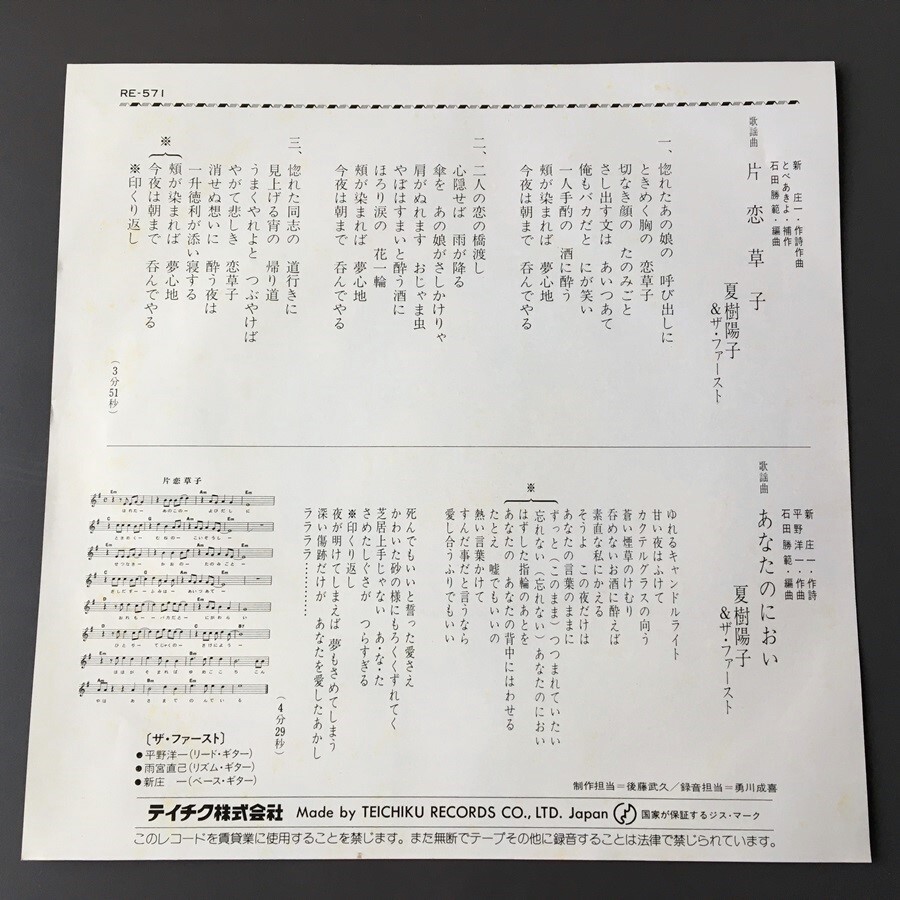 RE-571
歌謡曲
片恋草子
新 庄一・作詩作曲
とべあきよ・補作
石田勝範・編曲
夏樹陽子
&ザ・ファースト
一、惚れたあの娘の 呼び出しに
ときめく胸の 恋草子
切なき顔の たのみごと
さし出す文は あいつあて
俺もバカだと にが笑い
一人手酌の 酒に酔う
頬が染まれば 夢心地
今夜は朝まで 呑んでやる
二、二人の恋の橋渡し
心隠せば 雨が降る
傘を あの娘がさしかけりゃ
肩がぬれます おじゃま虫
やぼはすまいと酔う酒に
ほろり涙の 花一輪
頬が染まれば 夢心地
今夜は朝まで 呑んでやる
三、惚れた同志の 道行きに
見上げる宵の 帰り道
うまくやれよと つぶやけば
やがて悲しき 恋草子
消せぬ想いに 酔う夜は
一升徳利が添い寝する
※
頬が染まれば 夢心地
今夜は朝まで 呑んでやる
※印くり返し
(3分51秒)
歌謡曲
あなたのにおい
新 庄一・作詩
平野洋一・作曲
石田勝範・編曲
夏樹陽子
&ザ・ファースト
ゆれるキャンドルライト
甘い夜はふけて
カクテルグラスの向う
蒼い煙草のけむり
呑めないお酒に酔えば
素直な私にかえる
そうよ この夜だけは
あなたの言葉のままに
※
ずっと(このまま)つつまれていたい
忘れない(忘れない)あなたのにおい
はずした指輪のあとを
あなたの あなたの背中にはわせる
たとえ 嘘でもいいの
熱い言葉かけて
すんだ事だと言うなら
愛し合うふりでもいい
死んでもいいと誓った愛さえ
かわいた砂の様にもろくくずれてく
芝居上手じゃない あ・な・た
さめたしぐさが つらすぎる
※印くり返し
夜が明けてしまえば 夢もさめてしまう
深い傷跡だけが あなたを愛したあかし
ラララララ…………
(4分29秒)
片恋草子
〔ザ・ファースト〕
●平野洋一(リード・ギター)
●雨宮直己(リズム・ギター)
●新庄 一(ベース・ギター)
制作担当=後藤武久/録音担当=勇川成喜
テイチク株式会社 Made by TEICHIKU RECORDS CO., LTD. Japan 国家が保証するジス・マーク
このレコードを賃貸業に使用することを禁じます。また無断でテープその他に録音することは法律で禁じられています。